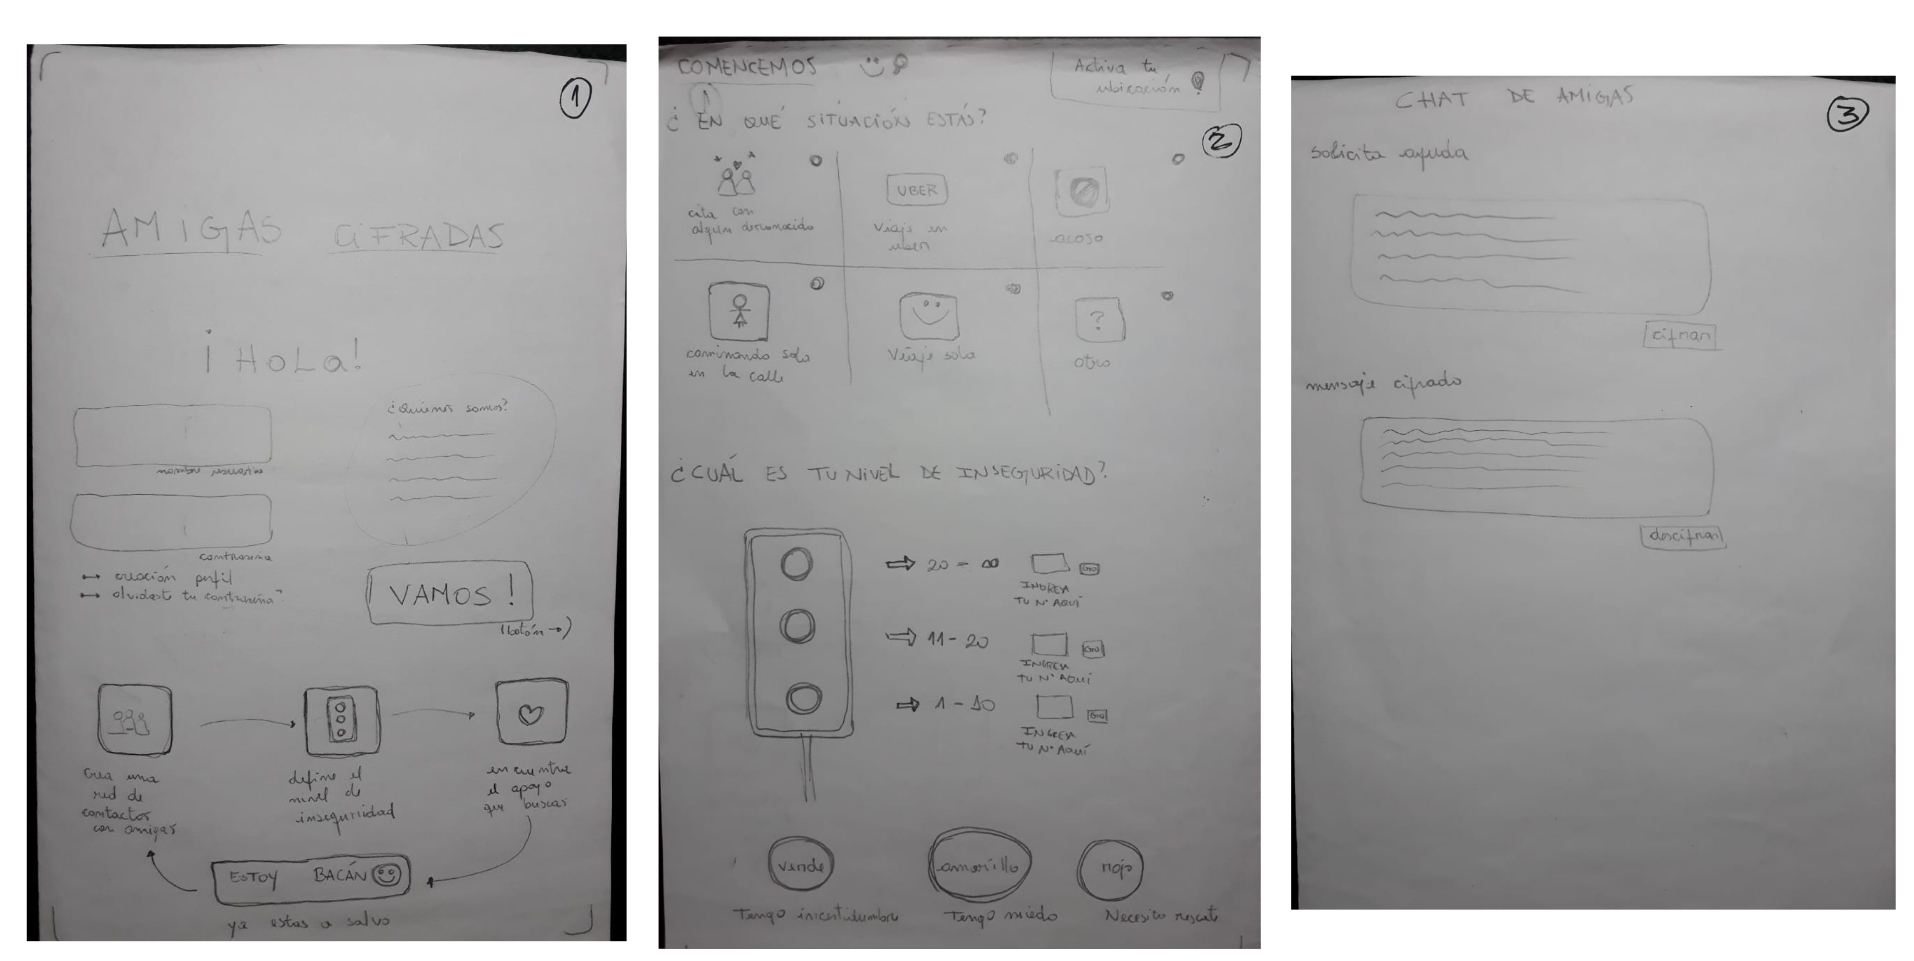 1
AMIGAS CIFRADAS
¡HOLA!
¿Quienes somos?
contraseña
creación perfil
olvidaste tu contraseña?
VAMOS!
(botón →)
crea una
red de
contactos
con amigas
define el
nivel de
inseguridad
encuentra
el apoyo
que buscas
ESTOY BACÁN
ya estas a salvo
COMENCEMOS
Activa tu
ubicación
2
¿EN QUÉ SITUACIÓN ESTÁS?
cita con
algun desconocido
UBER
Viaje en
uber
acoso
caminando sola
en la calle
Viaje sola
?
otro
¿CUÁL ES TU NIVEL DE INSEGURIDAD?
⇒ 20 - ∞
INGRESA
TU N° AQUÍ
⇒ 11 - 20
INGRESA
TU N° AQUÍ
⇒ 1 - 10
INGRESA
TU N° AQUÍ
verde
amarillo
rojo
Tengo incertidumbre
Tengo miedo
Necesito rescate
CHAT DE AMIGAS
3
solicita ayuda
cifrar
mensaje cifrado
descifrar